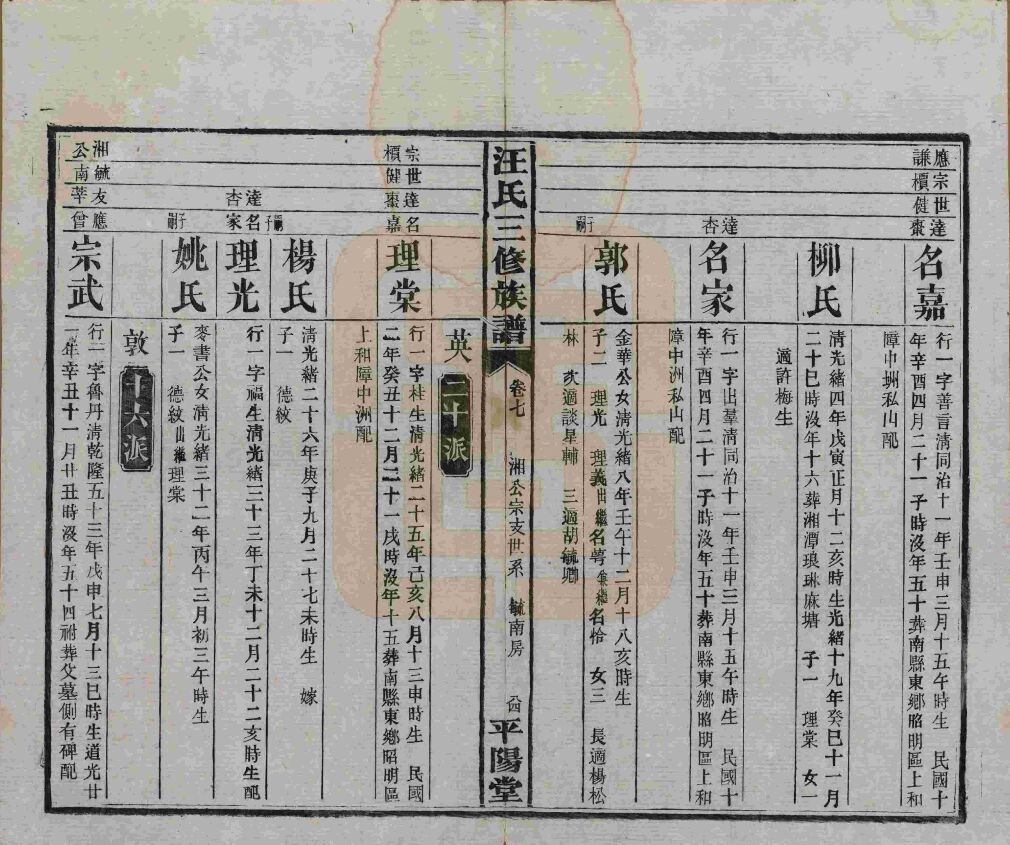 應宗世達
謙櫝健棗
名嘉
行一字善言清同治十一年壬申三月十五午時生 民國十
年辛酉四月二十一子時沒年五十葬南縣東鄉昭明區上和
障中洲私山配
柳氏
清光緒四年戊寅正月十二亥時生光緒十九年癸巳十一月
二十巳時沒年十六葬湘潭琅琳麻塘 子一 理棠 女一
適許梅生
達
杏
名家
行一字出羣清同治十一年壬申三月十五午時生 民國十
年辛酉四月二十一子時沒年五十葬南縣東鄉昭明區上和
障中洲私山配
子嗣
郭氏
金華公女清光緒八年壬午十二月十八亥時生
子二 理光 理義出繼名萼兼繼名恰 女三 長適楊松
林 次適談星輔 三適胡毓卿
汪氏三修族譜
卷七
湘公宗支世系 毓南房
平陽堂
英二十派
宗世達名
櫝健棗嘉
理棠
行一字桂生清光緒二十五年己亥八月十三申時生 民國
二年癸丑十二月二十一戌時沒年十五葬南縣東鄉昭明區
上和障中洲配
子嗣
楊氏
清光緒二十六年庚子九月二十七未時生 嫁
子一 德紋
達名
杏家
理光
行一字福生清光緒三十三年丁未十二月二十二亥時生配
子嗣
姚氏
麥書公女清光緒三十二年丙午三月初三午時生
子一 德紋出繼理棠
敦十六派
湘毓友應
公南莘曾
宗武
行一字魯丹清乾隆五十三年戊申七月十三巳時生道光廿
一年辛丑十一月廿丑時沒年五十四祔葬父墓側有碑配